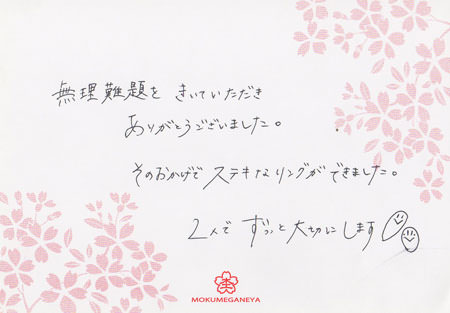 無理難題を きいていただき
ありがとうございました。
そのおかげで ステキなリングができました。
2人で ずっと大切にします
MOKUMEGANEYA